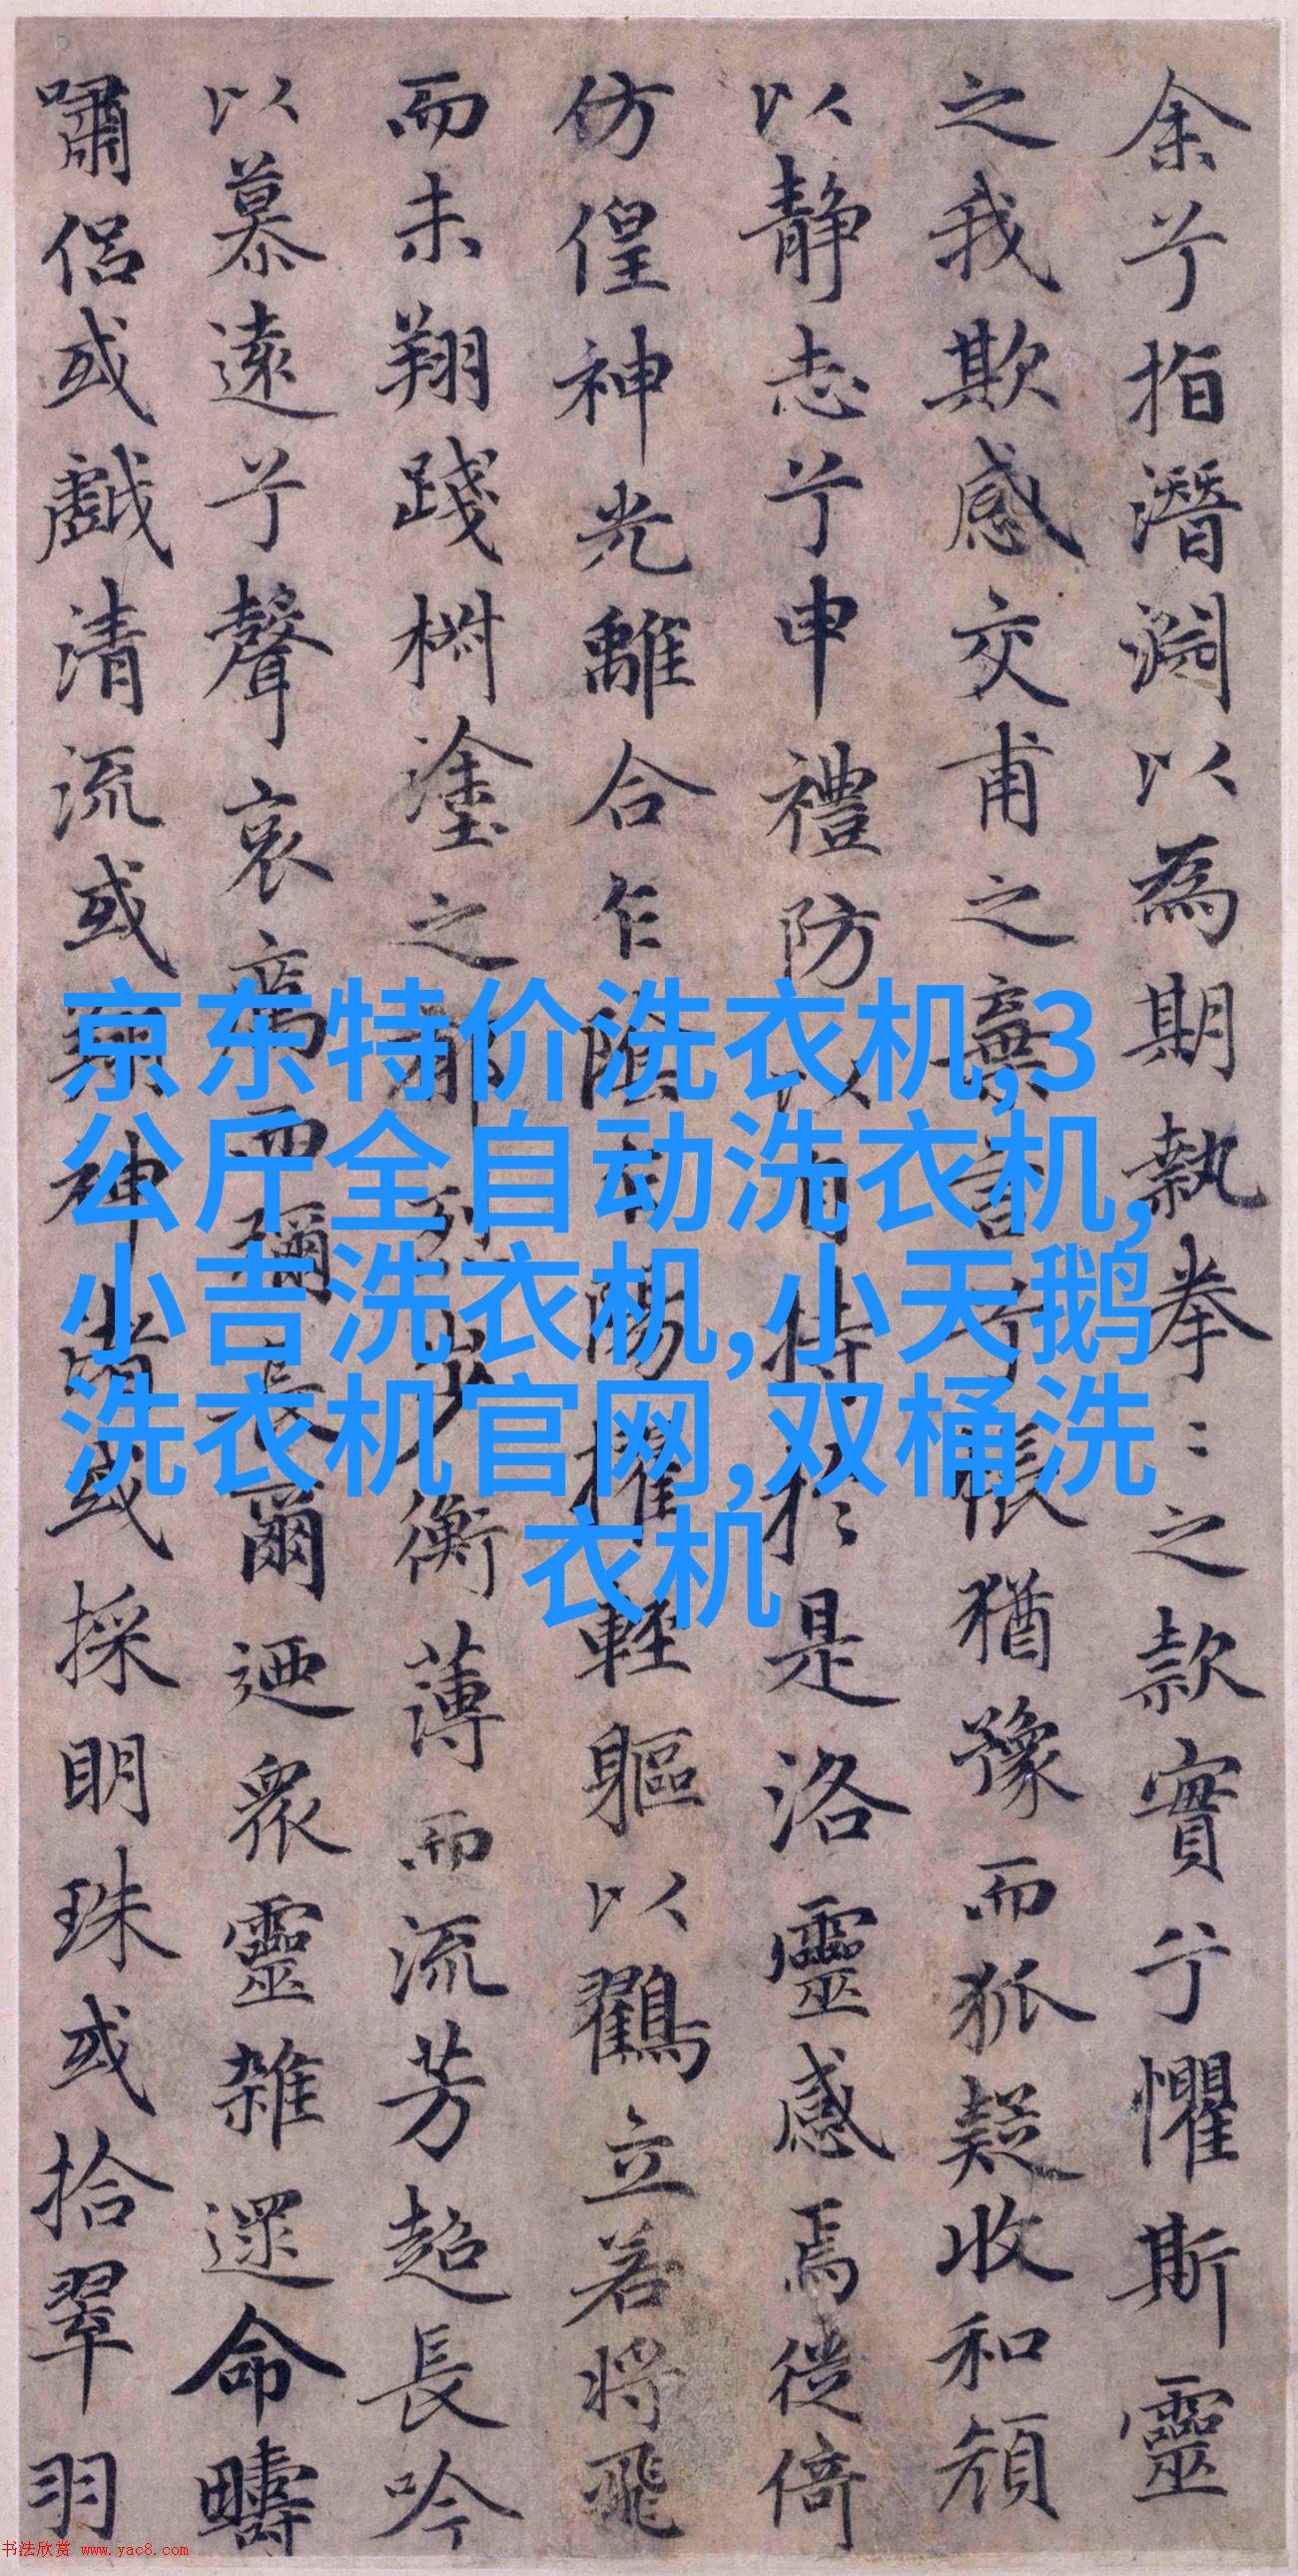 余兮指潛淵以為期執拳〻之款實兮懼斯靈
之我欺感交甫之棄言兮悵猶豫而狐疑收和顏
以靜志兮申禮防以自持於是洛靈感焉徙倚
仿偟神光離合乍陰乍陽擢輕軀以鸖立若將飛
而未翔踐椒塗之郁烈步蘅薄而流芳超長吟
以慕遠兮聲哀厲而彌長爾迺衆靈雜遝命疇
嘯侶或戲清流或翔神渚或採明珠或拾翠羽
京东特价洗衣机,3
公斤全自动洗衣机,
小吉洗衣机,小天鹅
洗衣机官网,双桶洗
衣机
书法欣赏 www.yac8.com